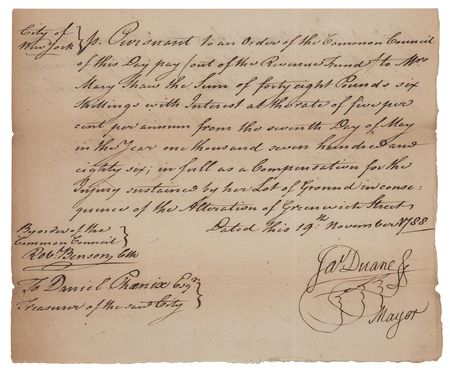 City of
New York } ss. Pursuant to an Order of the Common Council
of this Day pay out of the Revenue Fund to Mrs
Mary Shaw the Sum of forty eight Pounds six
Shillings with Interest at the rate of five per
cent per annum from the seventh Day of May
in the Year one thousand seven hundred and
eighty six; in full as a Compensation for the
Injury sustained by her Lot of Ground in conse-
quence of the Alteration of Greenwich Street
Dated this 19th November 1788
By order of the
Common Council
Robt Benson, Clk
Jas Duane
Mayor
To Daniel Phœnix Esqr
Treasurer of the said City